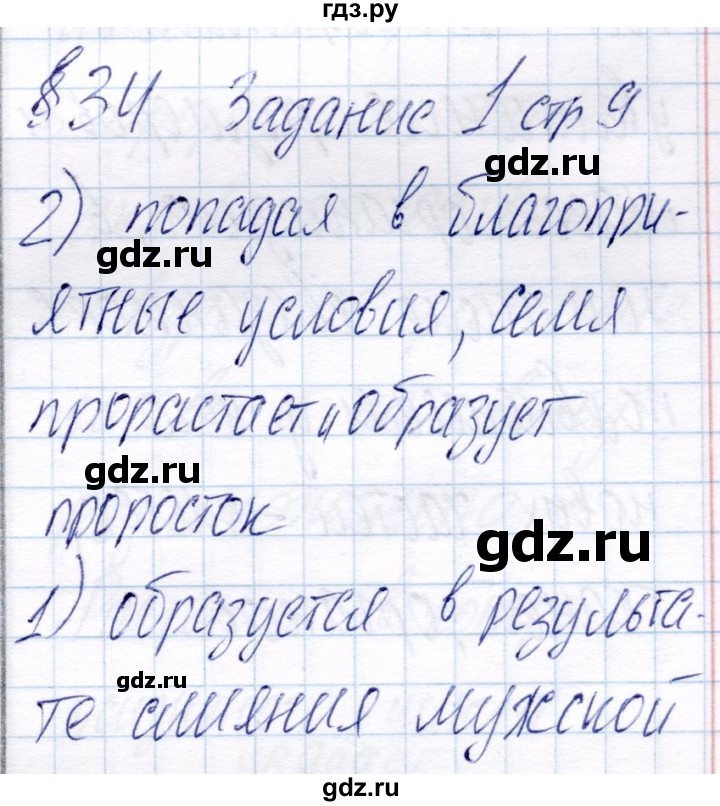 гдз.ру
§ 34 Задание 1 стр 9
gdz.ru
2) попадая в благопри-
gdz.ru
ятные условия, семя
прорастает и образует
gdz.ru
проросток
gdz.ru
1) образуется в результа-
gdz.ru
те слияния мужской
gdz.ru